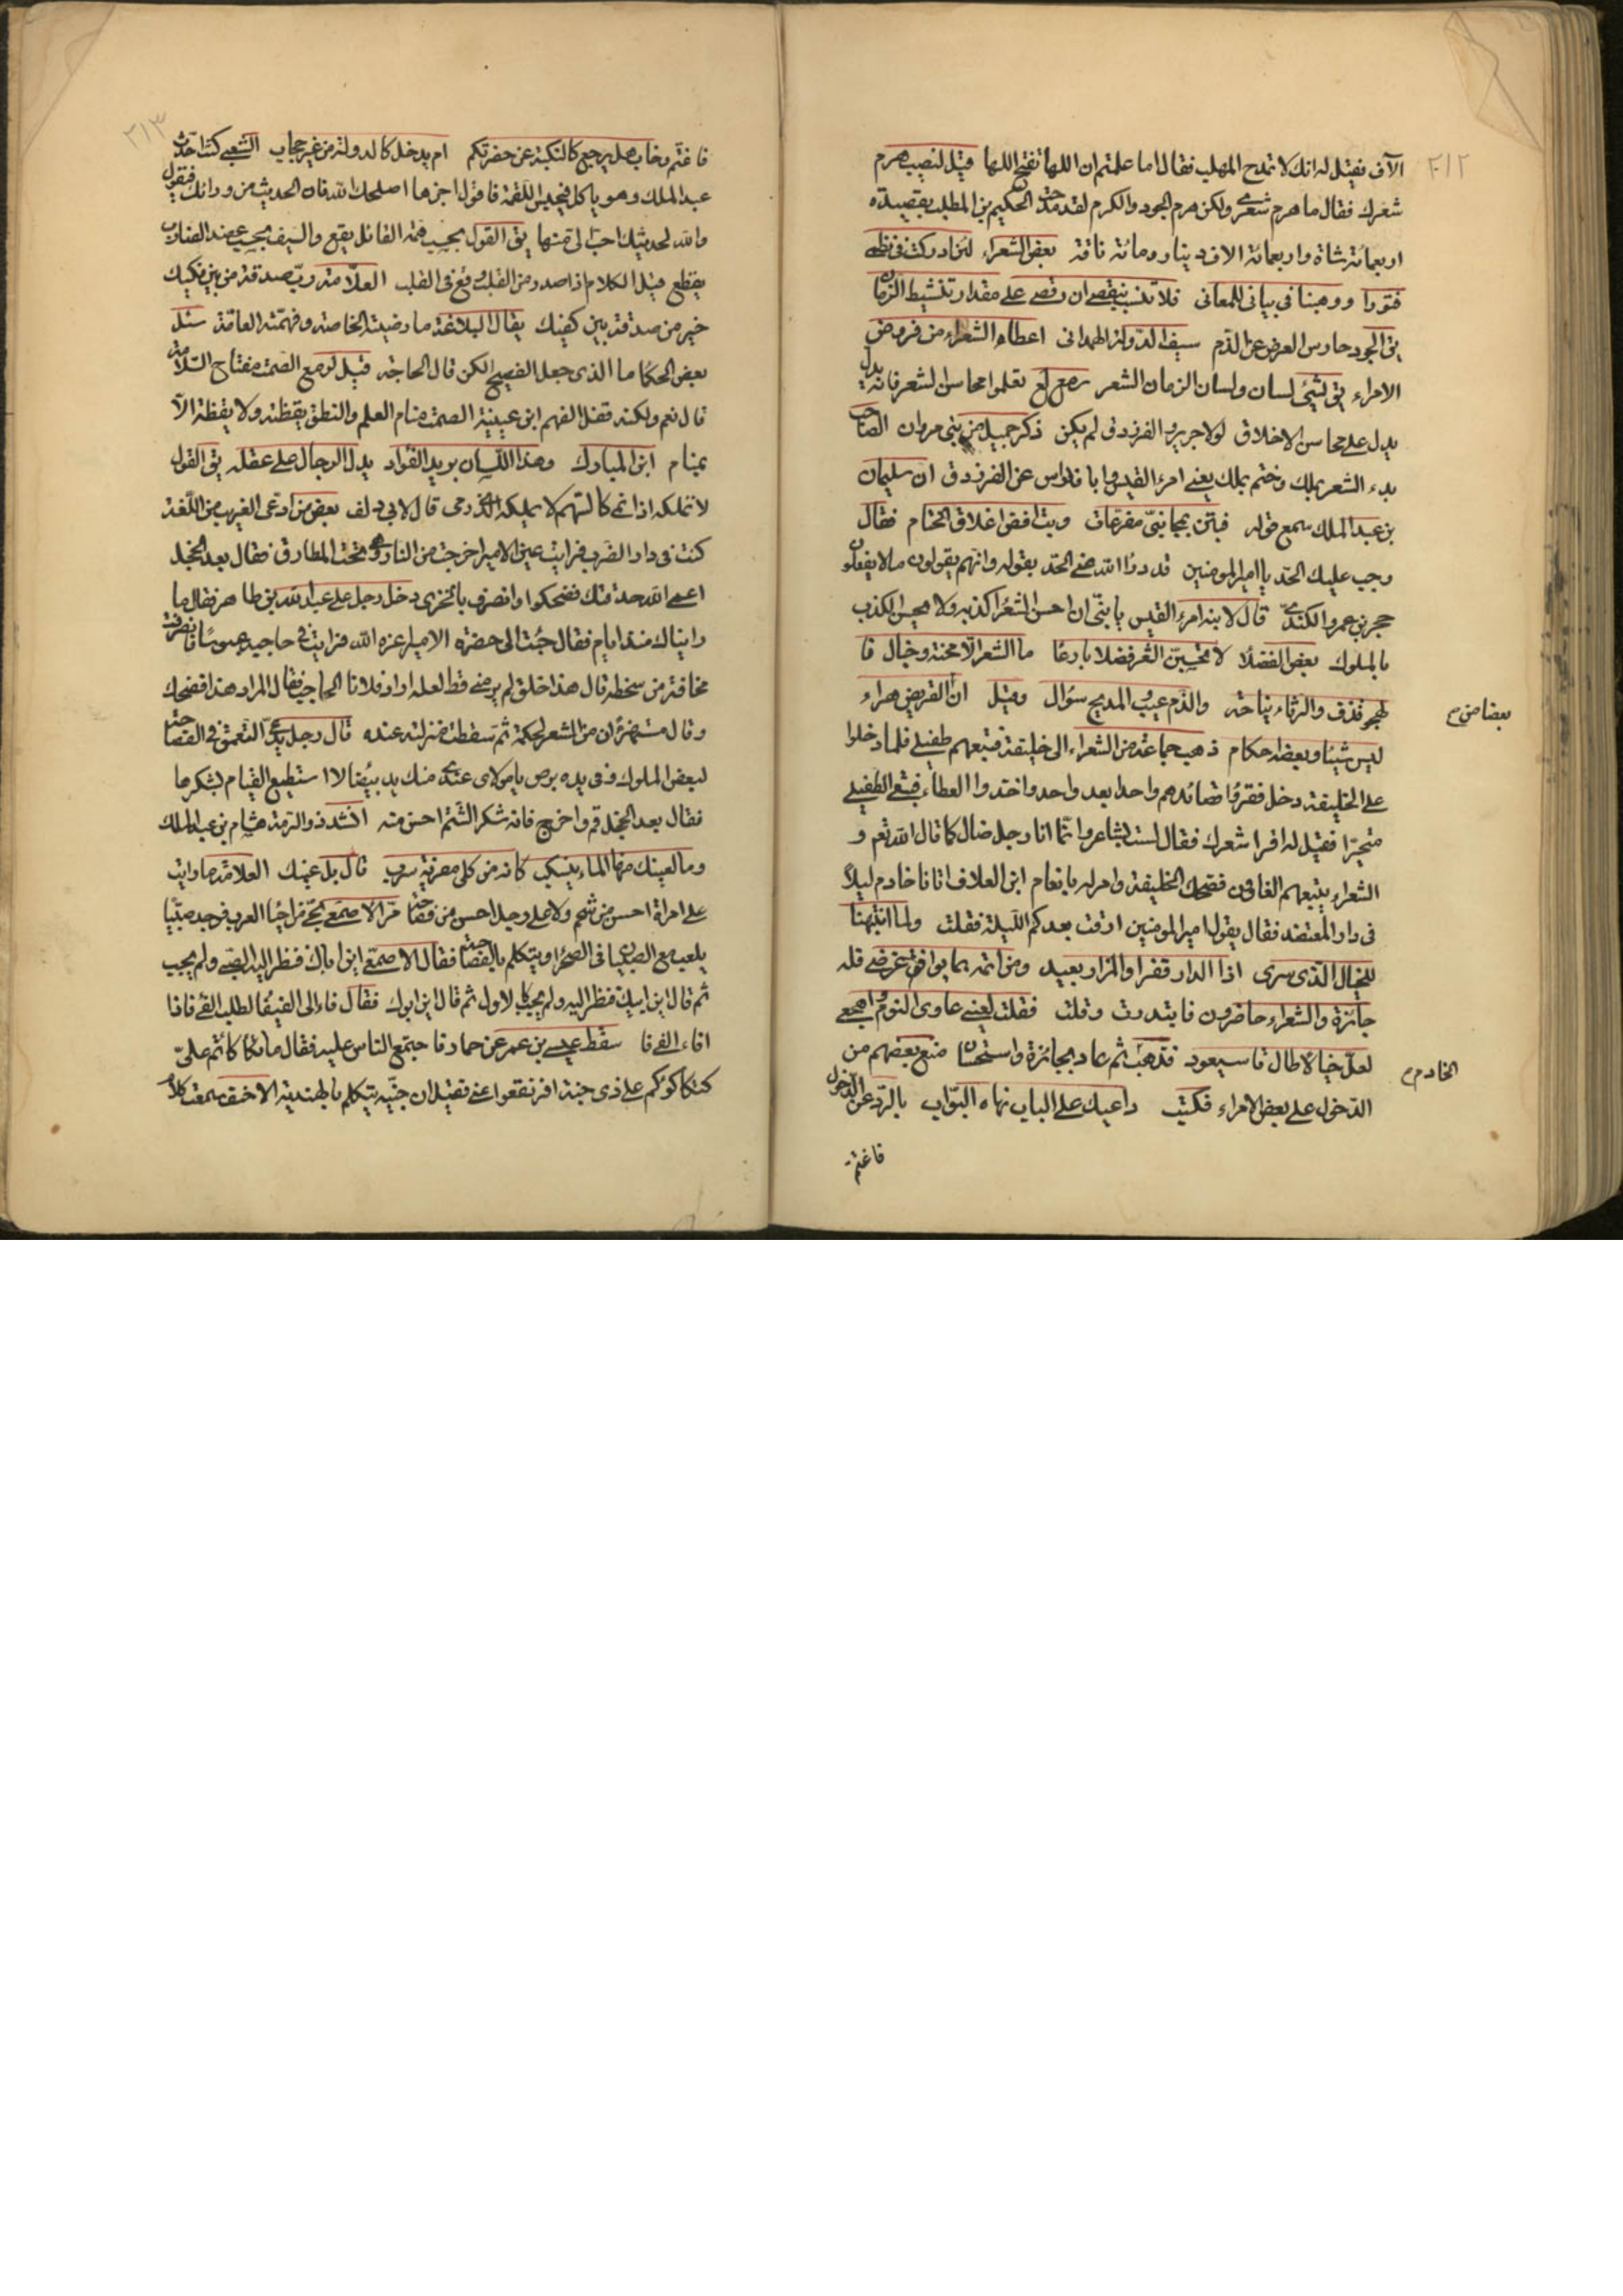 ٢١٢
الآف فقيل له انك لا تمدح المهلب فقال اما علمتم ان اللها تفتح اللها قيل لنصيب هرم
شعرك فقال ما هرم شعرى ولكن هرم الجود والكرم لقد مدحت الحكيم بن المطلب بقصيدة
اربعمائة شاة واربعمائة الاف دينار ومائة ناقة بعض الشعراء لئن ادركت فى نظمى
فتورا ووهنا فى بيانى للمعانى فلا تنسب بنقصى ان رقصى على مقدار تنشيط الزمان
يق الجود حارس العرض عن الذم سيف الدولة الهمدانى اعطاء الشعراء من فروض
الامراء يق لشئ لسان ولسان الزمان الشعر تعلموا محاسن الشعر فانه يدل
يدل على محاسن الاخلاق لولا جرير والفرزدق لم يكن ذكر جميل من بنى مروان الصاحب
بدء الشعر بملك وختم بملك يعنى امرء القيس وابا فراس عن الفرزدق ان سليمان
بن عبد الملك سمع قوله فبتن بجانبى مصرعات وبت افض اغلاق الختام فقال
وجب عليك الحد يا امير المومنين قد درأ الله عنى الحد بقوله وانهم يقولون ما لا يفعلون
حجر بن عمرو الكندى قال لابنه امرء القيس يا بنى ان احسن الشعر اكذبه ولا يحسن الكذب
بالملوك بعض الفضلا لا تحسبن الشعر فضلا بارعا ما الشعر الا محنة وخبال فا
لهجو قذف والرثاء نياحة والذم عيب والمديح سؤال وقيل ان القريض هراء
بعضا ص م
ليس شيئا وبعضه احكام ذهب جماعة من الشعراء الى خليفة فتبعهم طفيلى فلما دخلوا
على الخليفة دخل فقرؤا قصائدهم واحدا بعد واحد واخذوا العطاء فبقى الطفيلى
متحيرا فقيل له اقرا شعرك فقال لست بشاعر وانما انا رجل ضال كما قال الله تعم و
الشعراء يتبعهم الغاوون فضحك الخليفة وامر له بانعام ابن العلاف اتانا خادم ليلا
فى دار المعتضد فقال يقول امير المومنين ارقت بعدكم الليلة فقلت ولما انتبهنا
للخيال الذى سرى اذا الدار قفرا والمزار بعيد ومن اتمه بما يوافق غرضى فله
جائزة والشعراء حاضرون فابتدرت وقلت فقلت لعينى عاودى النوم واهجعى
لعل خيالا طال ما سيعود فذهب ثم عاد بجائزة واستحسان منع بعضهم من
الخادم م
الدخول على بعض الامراء فكتب داعيك على الباب نهاه البواب بالرد عن الدخول
فاغتم
٢١٣
فاغتم وخاب هل يرجع كالنكبة عن حضرتكم ام يدخل كالدولة من غير حجاب الشعبى كنت احدث
عبد الملك وهو ياكل فيحبس اللقمة فاقول اجزها اصلحك الله فان الحديث من ورائك فيقول
والله لحديثك احب الى منها يق القول بحسب همة القائل يقع والسيف بحسب عضد الضارب
يقطع قيل الكلام اذا صدر من القلب وقع فى القلب العلامة رب صدقة من بين فكيك
خير من صدقة بين كفيك يقال البلاغة ما رضيته الخاصة وفهمته العامة سئل
بعض الحكما ما الذى جعل الفصيح الكن قال الحاجة قيل الصمت مفتاح السلامة
قال نعم ولكنه قفل الفهم ابن عيينة الصمت منام العلم والنطق يقظته ولا يقظة الا
بمنام ابن المبارك وهذا اللسان بريد الفؤاد يدل الرجال على عقله يق القول
لا تملكه اذا نمى كالسهم لا يملكه الذى رمى قال لابى دلف بعض من ادعى الغريب من اللغة
كنت فى دار الضرب فرايت عين الامير اخرجت من النار وهى تحت المطارق فقال بعد الخجل
اعمى الله حدقتك فضحكوا وانصرف بالخزى دخل رجل على عبد الله بن طاهر فقال ما
رايناك منذ ايام فقال جئت الى حضرة الامير اعزه الله فرايت فى حاجبه عبوسا فانصرفت
مخافة من سخطه قال هذا خلق لم يرضه قط لعله اراد فلانا الحاجب فقال المراد هذا فضحك
وقال مستهزئا ان من الشعر لحكمة ثم سقطت منزلته عنده قال رجل يدعى التعمق فى الفصاحة
لبعض الملوك وفى يده برص يا مولاى عندى منك يد بيضا لا استطيع القيام بشكرها
فقال بعد الخجل قم واخرج فانه شكر الشتم احسن منه انشد ذو الرمة هشام بن عبد الملك
وما لعينك منها الماء ينسكب كانه من كلى مفرية سرب قال بل عينك العلامة ما رايت
على امراة احسن من شحم ولا على رجل احسن من فصاحة مر الاصمعى بحى من احياء العرب فوجد صبيا
يلعب مع الصبيان فى الصحرا ويتكلم بالفصاحة فقال الاصمعى اين اباك فنظر اليه الصبى ولم يجب
ثم قال اين ابيك فنظر اليه ولم يجب كالاول ثم قال اين ابوك فقال فاء الى الفيفا لطلب الفئ فاذا
افاء الفئ فا سقط عيسى بن عمر عن حمار فاجتمع الناس عليه فقال ما لكم تكاكاتم على
كتكاكؤكم على ذى جنة افرنقعوا عنى فقيل ان جنيه يتكلم بالهندية الاخفش سمعت كلام